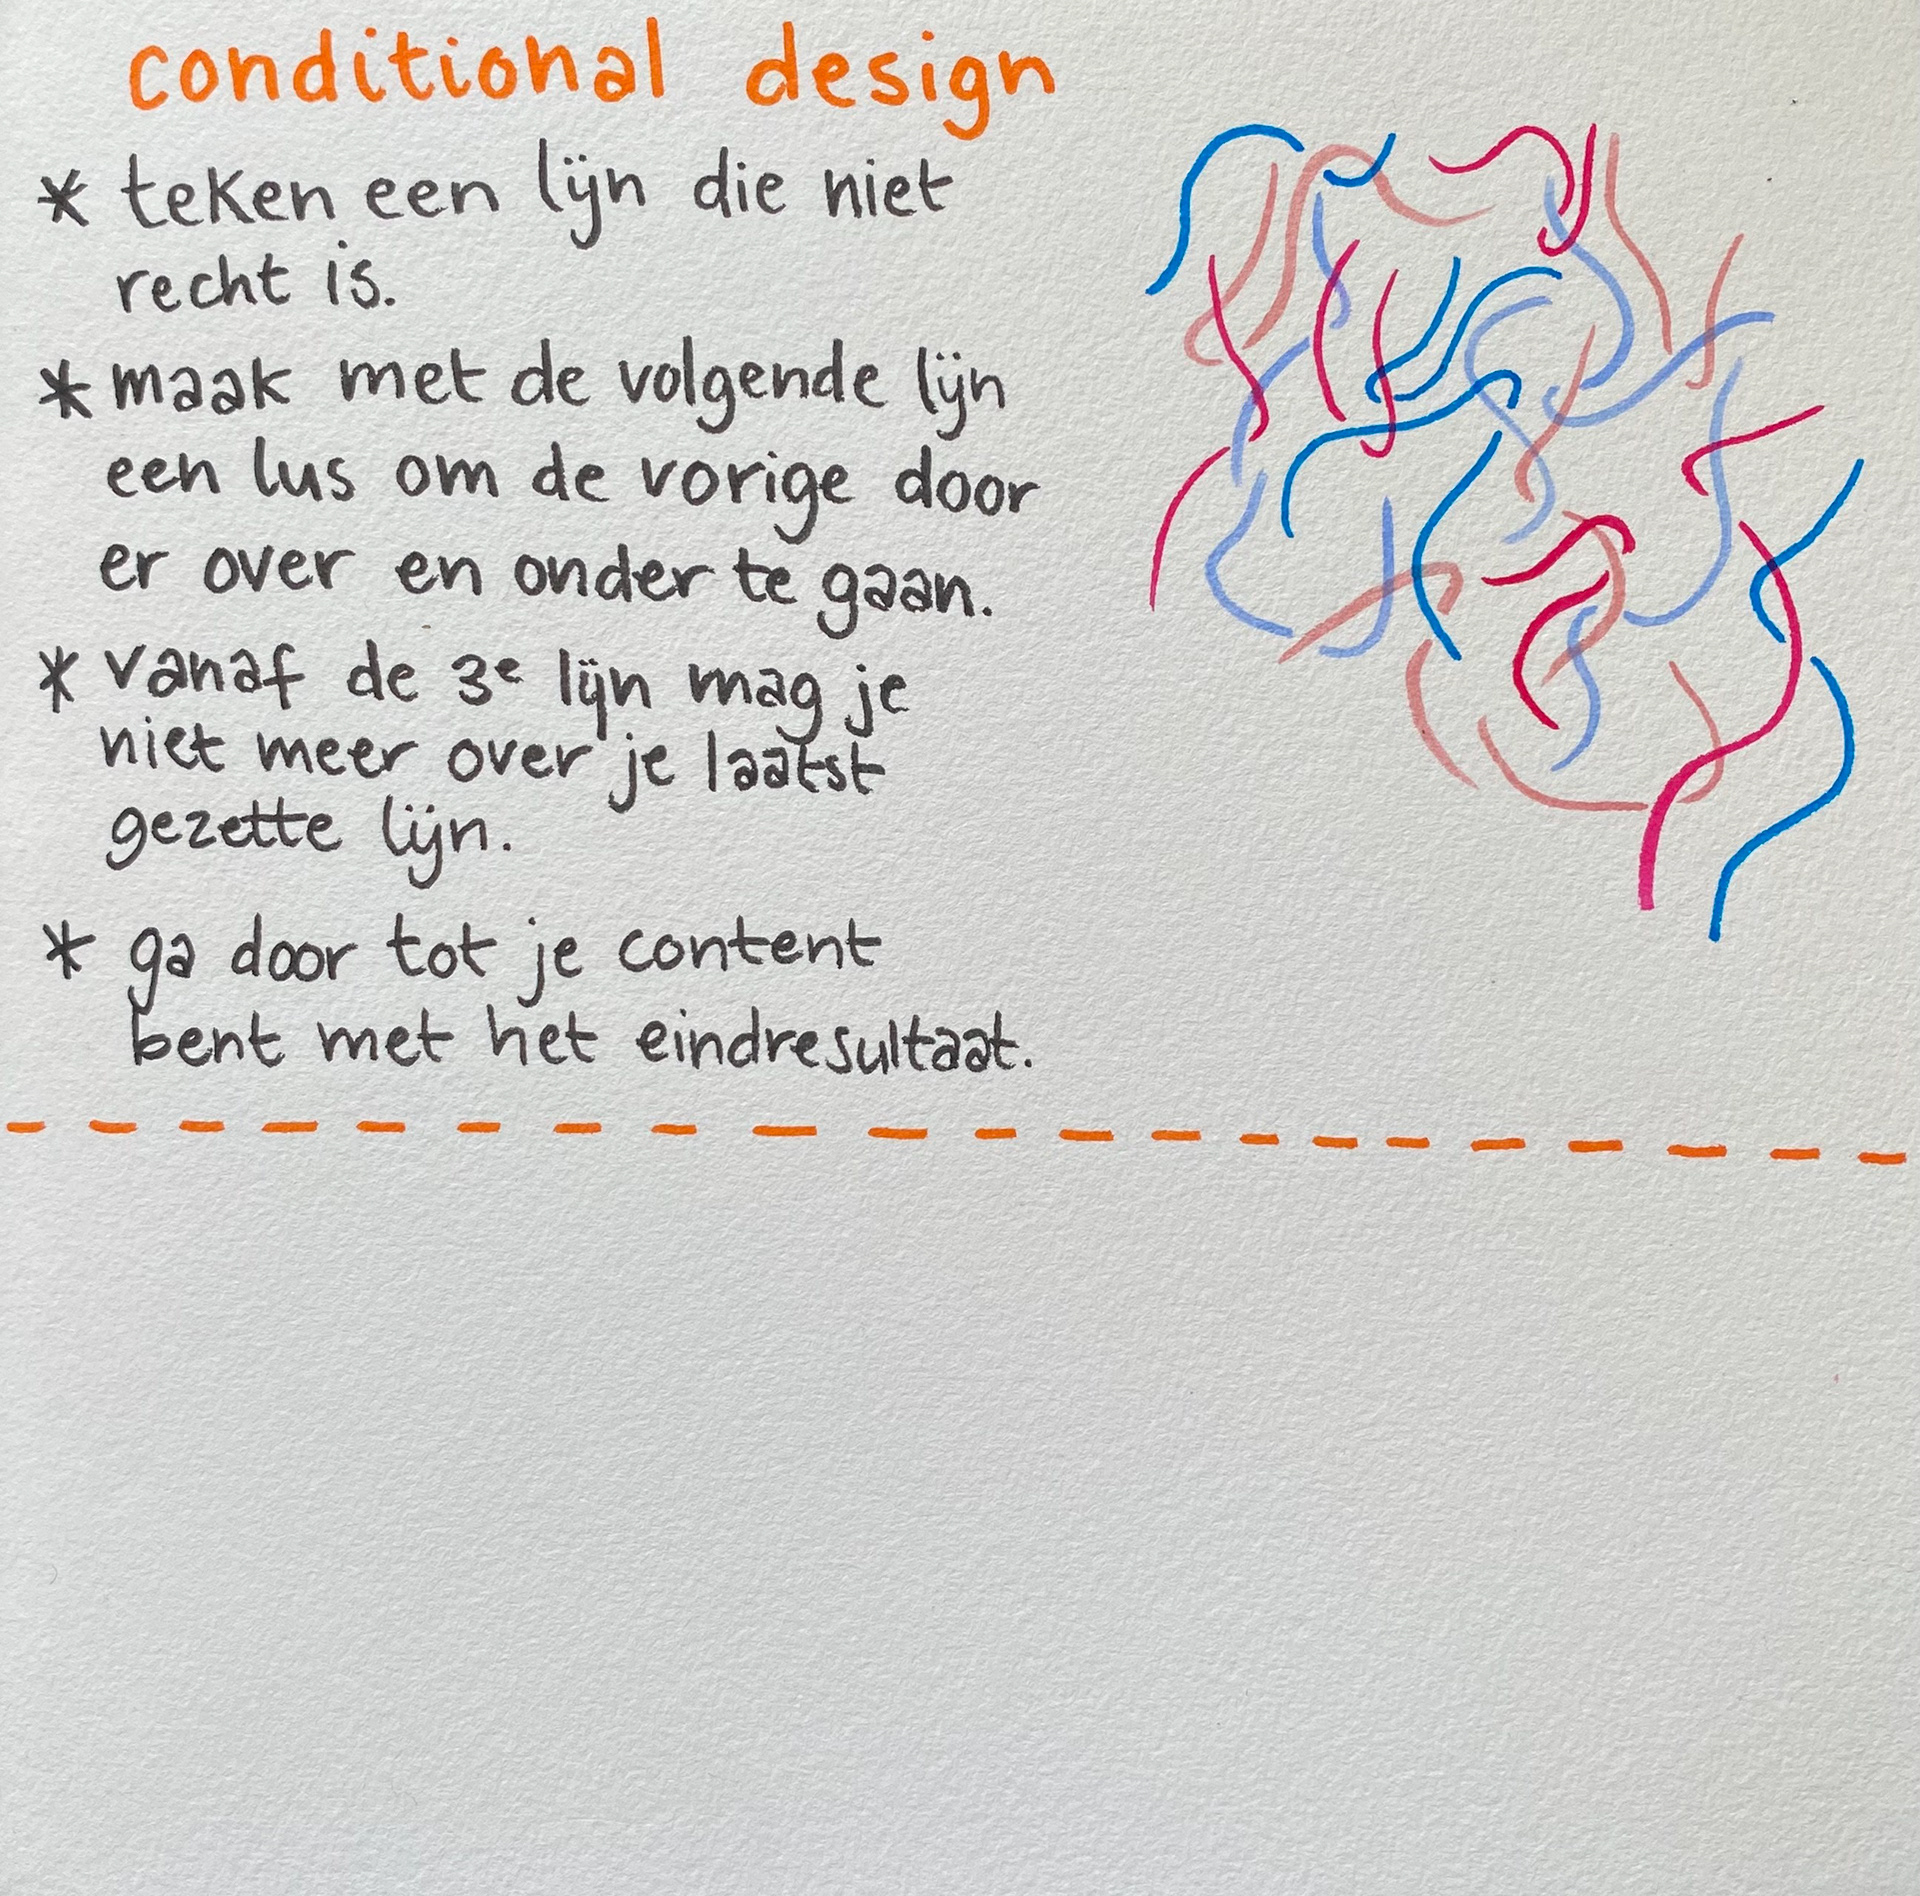 conditional design
* teken een lijn die niet
recht is.
* maak met de volgende lijn
een lus om de vorige door
er over en onder te gaan.
* vanaf de 3e lijn mag je
niet meer over je laatst
gezette lijn.
* ga door tot je content
bent met het eindresultaat.